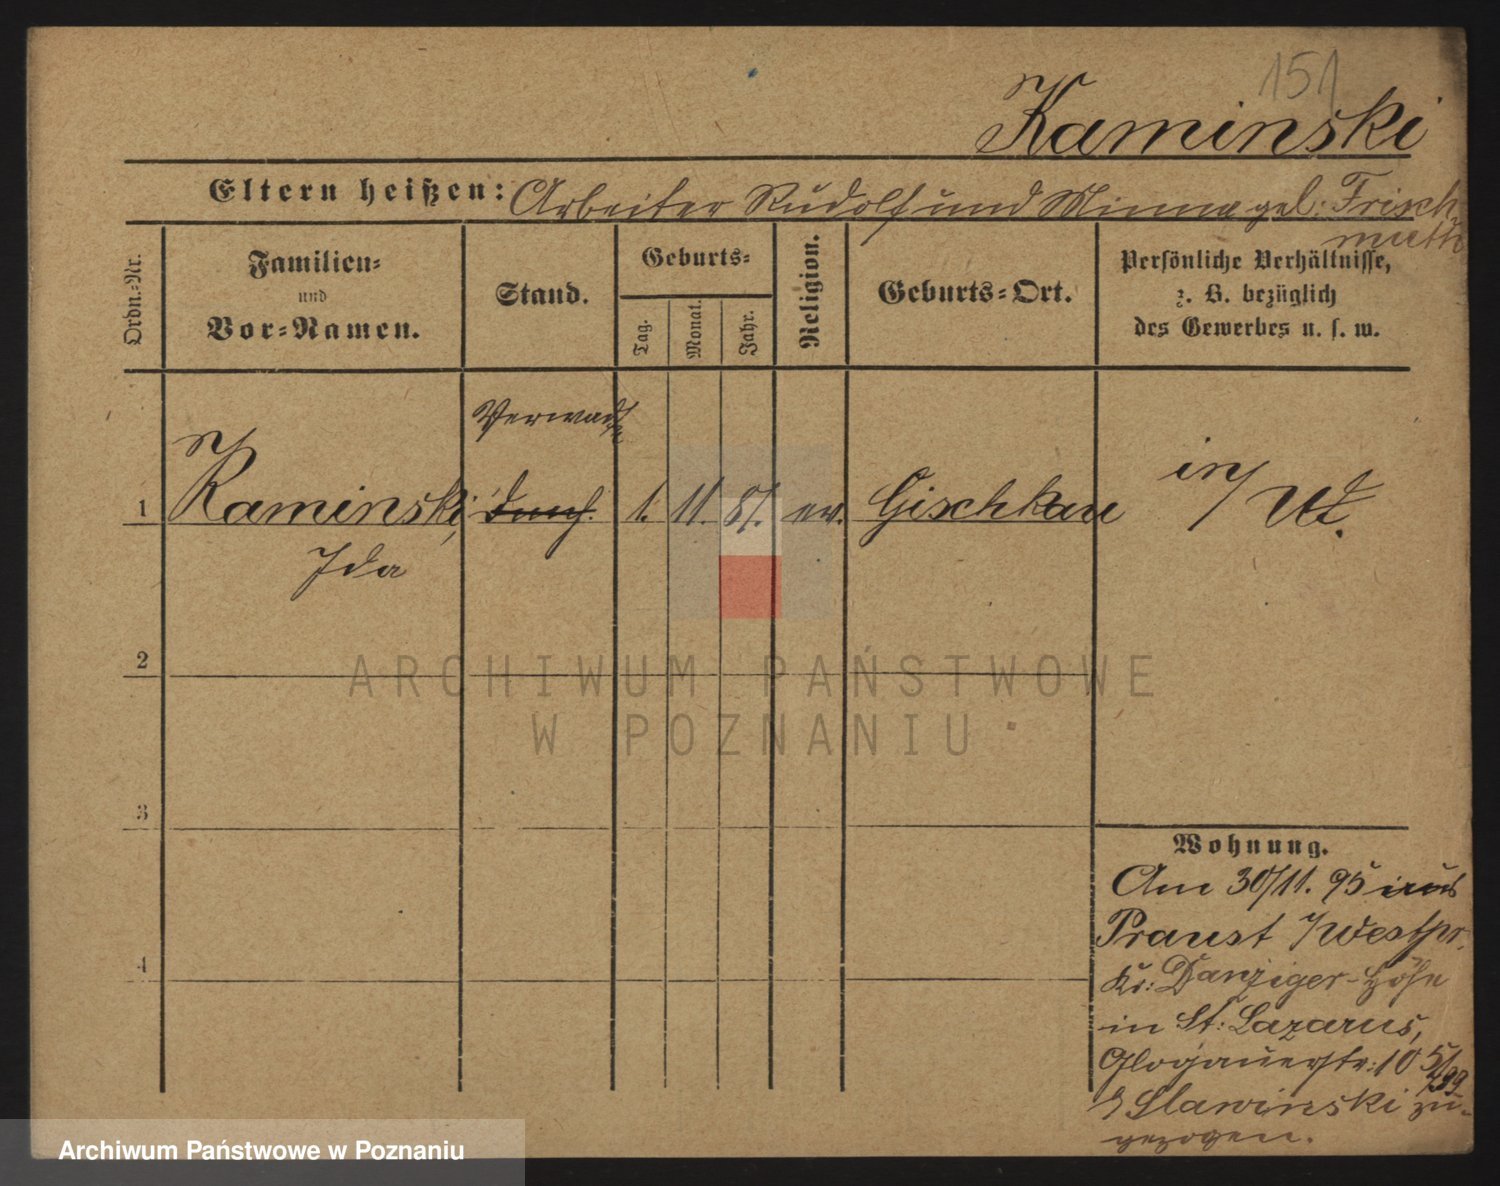 151
Kaminski
Eltern heißen: Arbeiter Rudolf und Minna gel. Frisch-
muth
Ordn.-Nr.
Familien-
und
Vor-Namen.
Stand.
Geburts-
Tag.
Monat.
Jahr.
Religion.
Geburts-Ort.
Persönliche Verhältnisse,
z. B. bezüglich
des Gewerbes u. s. w.
1
Kaminski,
Ida
1. 11. 81. ev. Gischkau
2
ARCHIWUM PAŃSTWOWE
W POZNANIU
3
4
Wohnung.
Am 30/11. 95 aus
Praust /Westpr.
Kr: Danziger-Höhe
in St: Lazarus,
Glogauerstr: 10
b Slawinski zu-
gezogen.
Archiwum Państwowe w Poznaniu